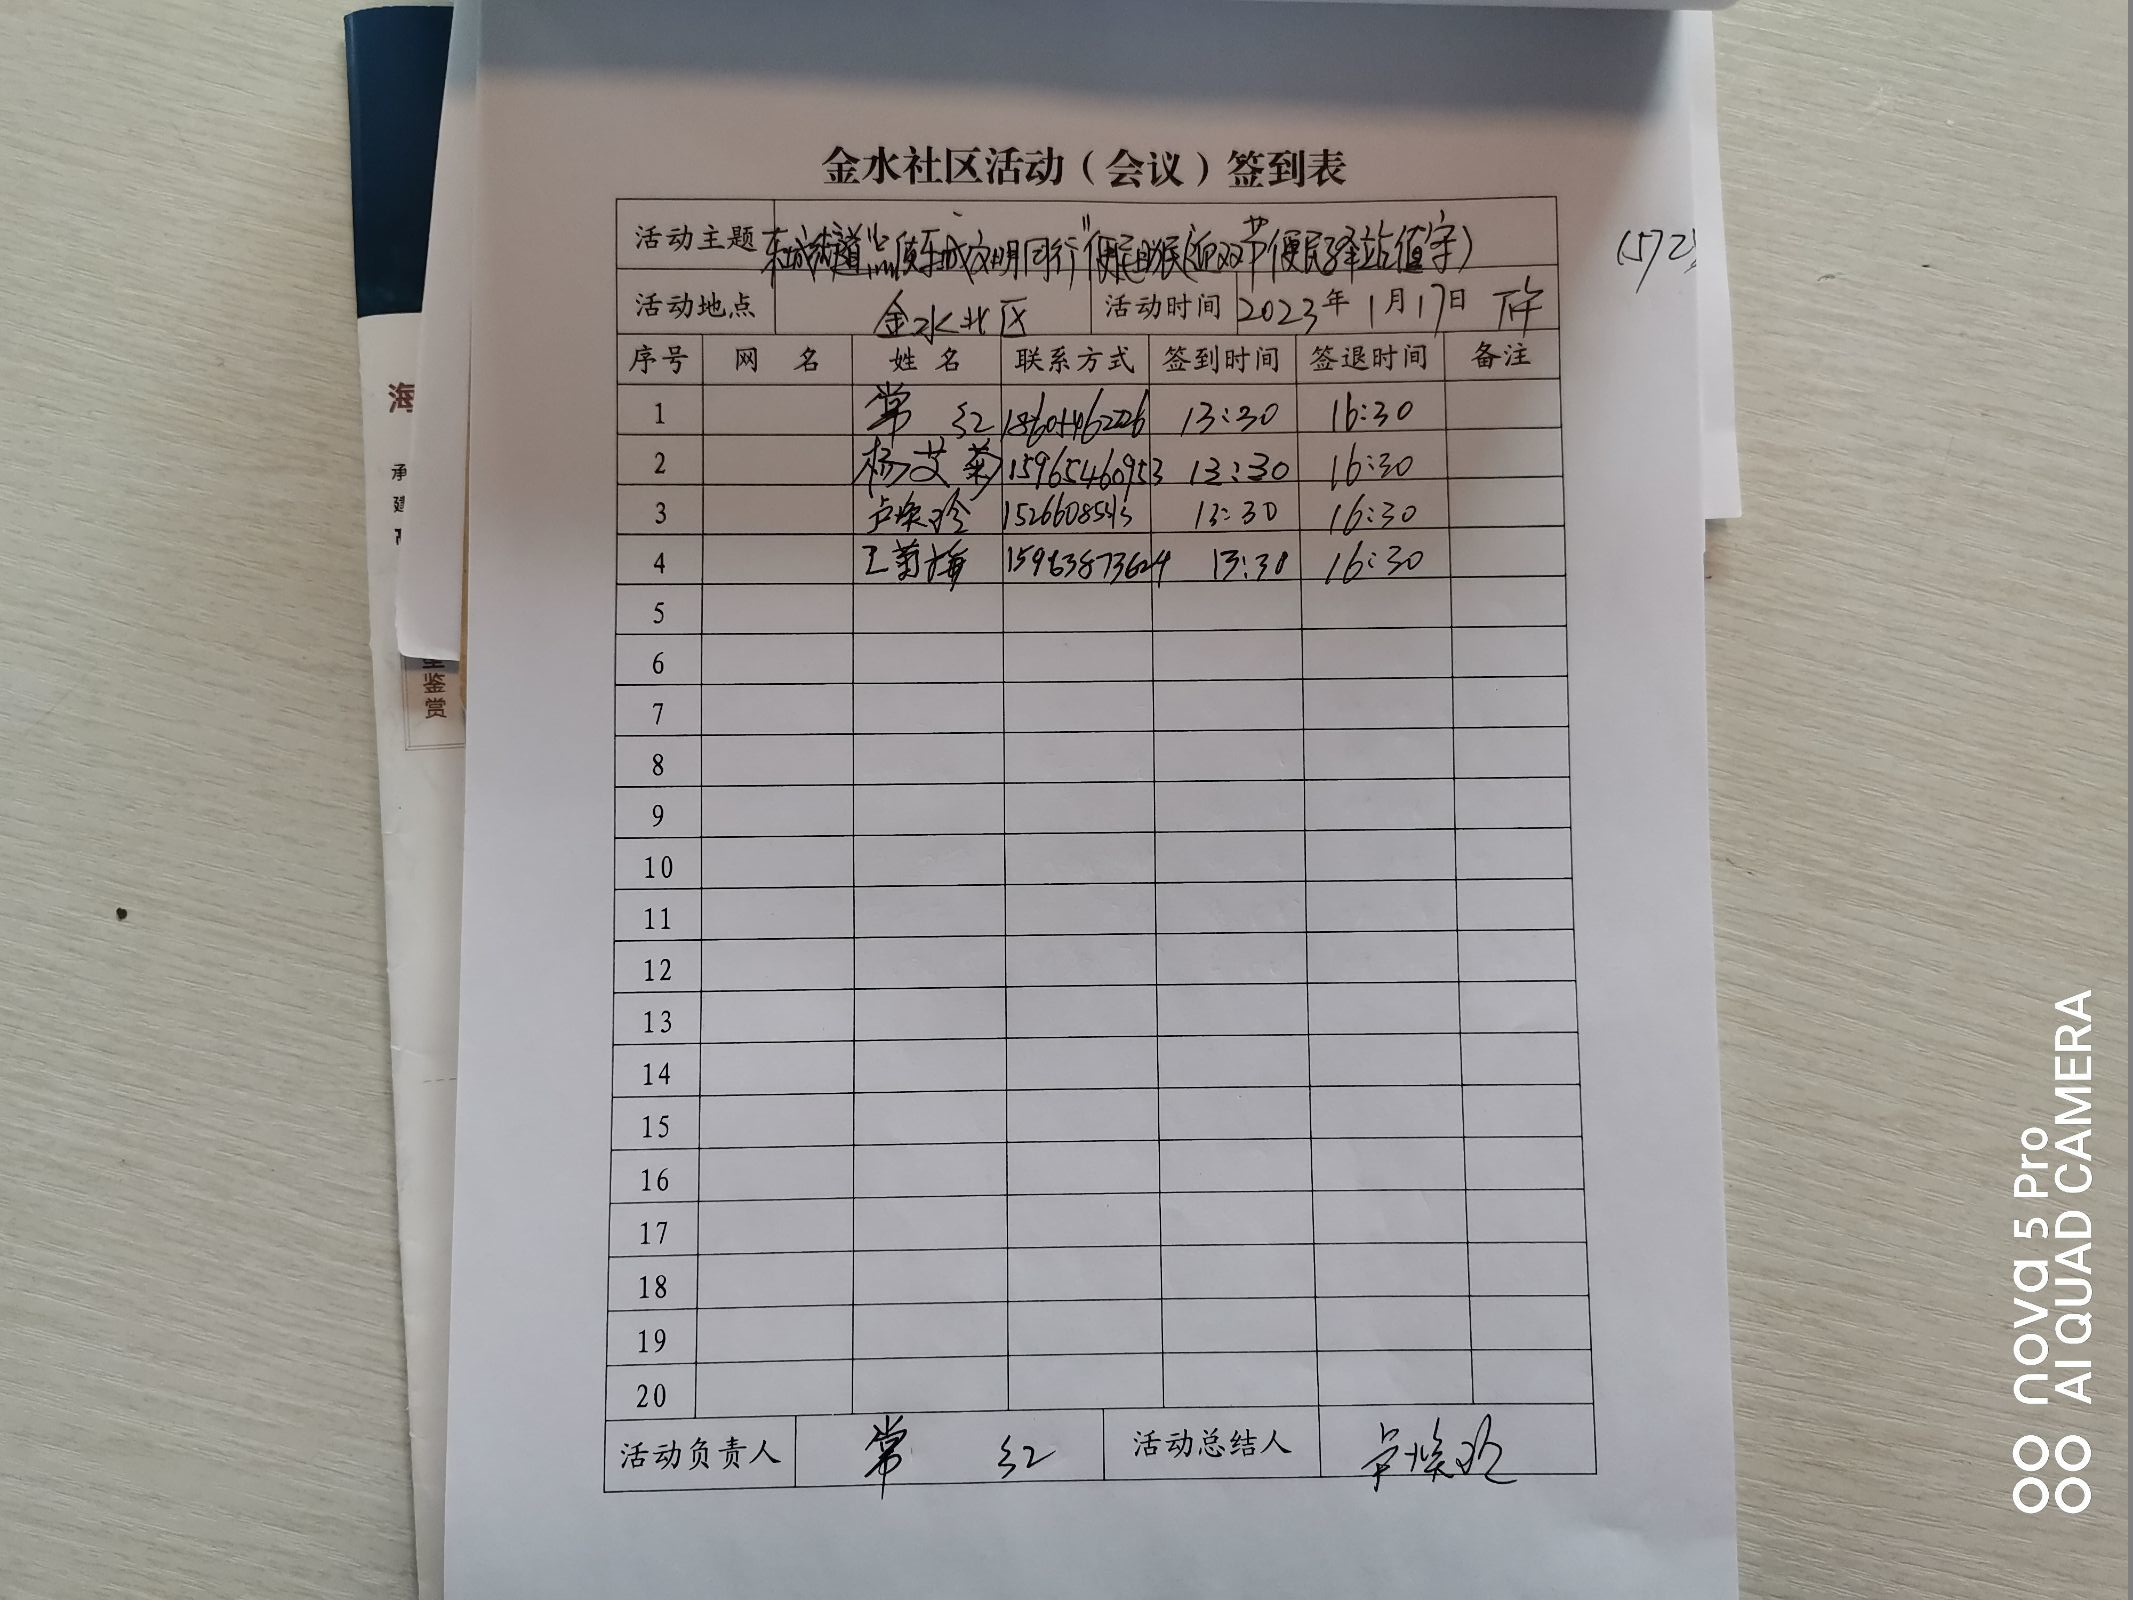 金水社区活动（会议）签到表
活动主题 东城街道"点废东城文明同行"便民助民(迎双节便民驿站值守) (572)
活动地点 金水北区 活动时间 2023年1月17日 下午
序号 网 名 姓 名 联系方式 签到时间 签退时间 备注
1 常 红 13:30 16:30
2 杨艾菊 15965460953 13:30 16:30
3 卢焕玲 13:30 16:30
4 王菊梅 13:30 16:30
5
6
7
8
9
10
11
12
13
14
15
16
17
18
19
20
活动负责人 常 红 活动总结人 卢焕玲
海
承
建
鉴
赏
nova 5 Pro
AI QUAD CAMERA